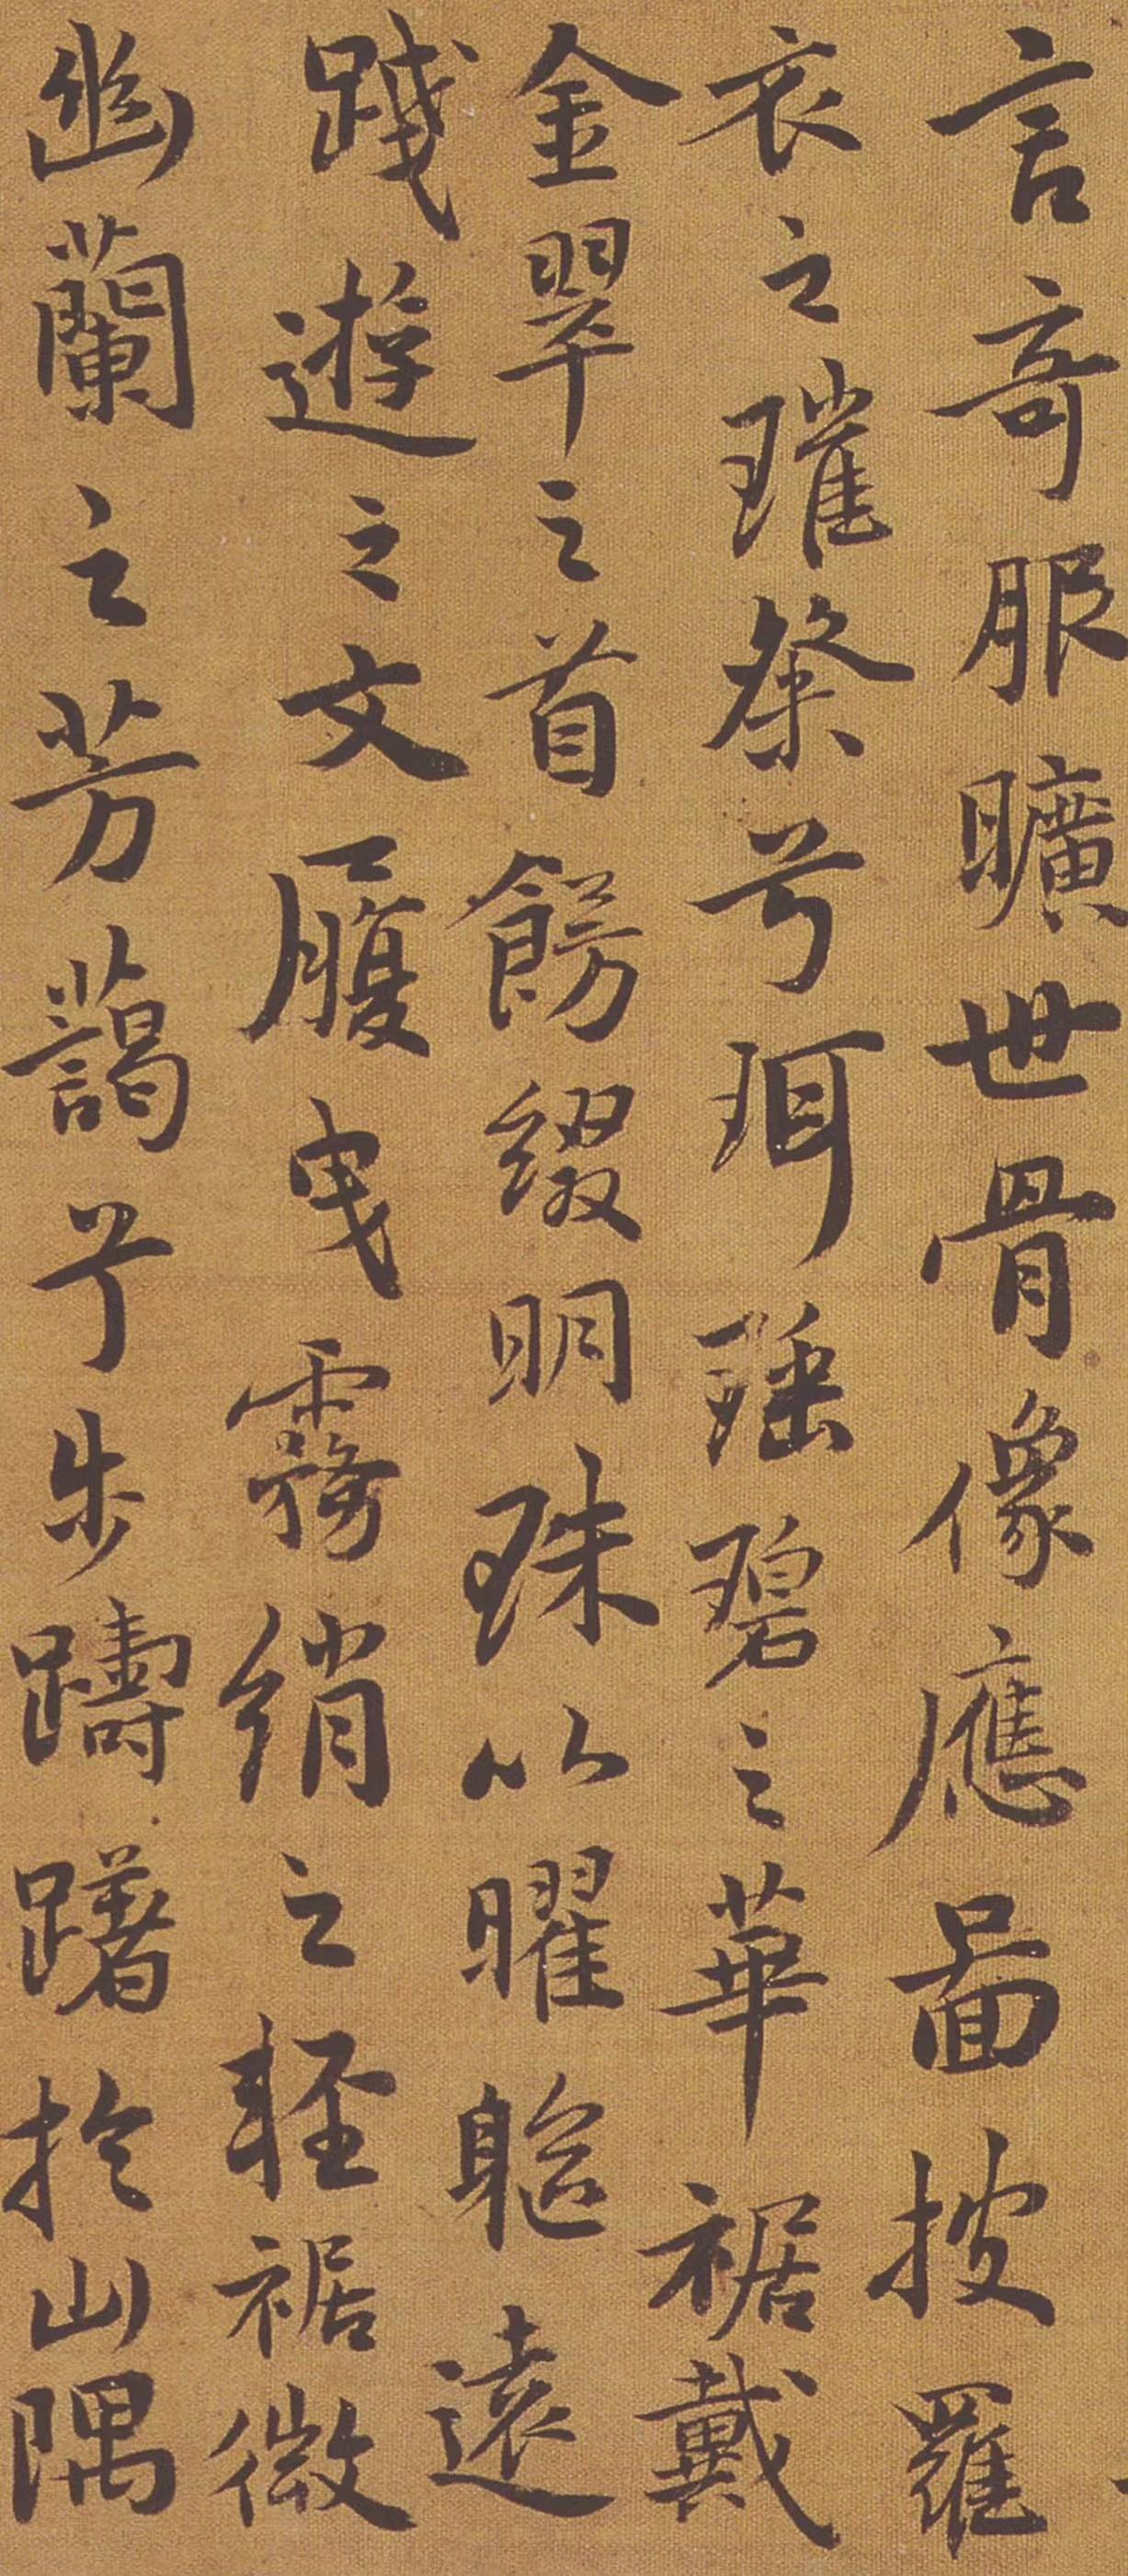 言奇服曠世骨像應圖披羅
衣之璀粲兮珥瑤碧之華裾戴
金翠之首餝綴明珠以曜軀遠
踐遊之文履曳霧綃之輕裾微
幽蘭之芳藹兮步躊躇於山隅